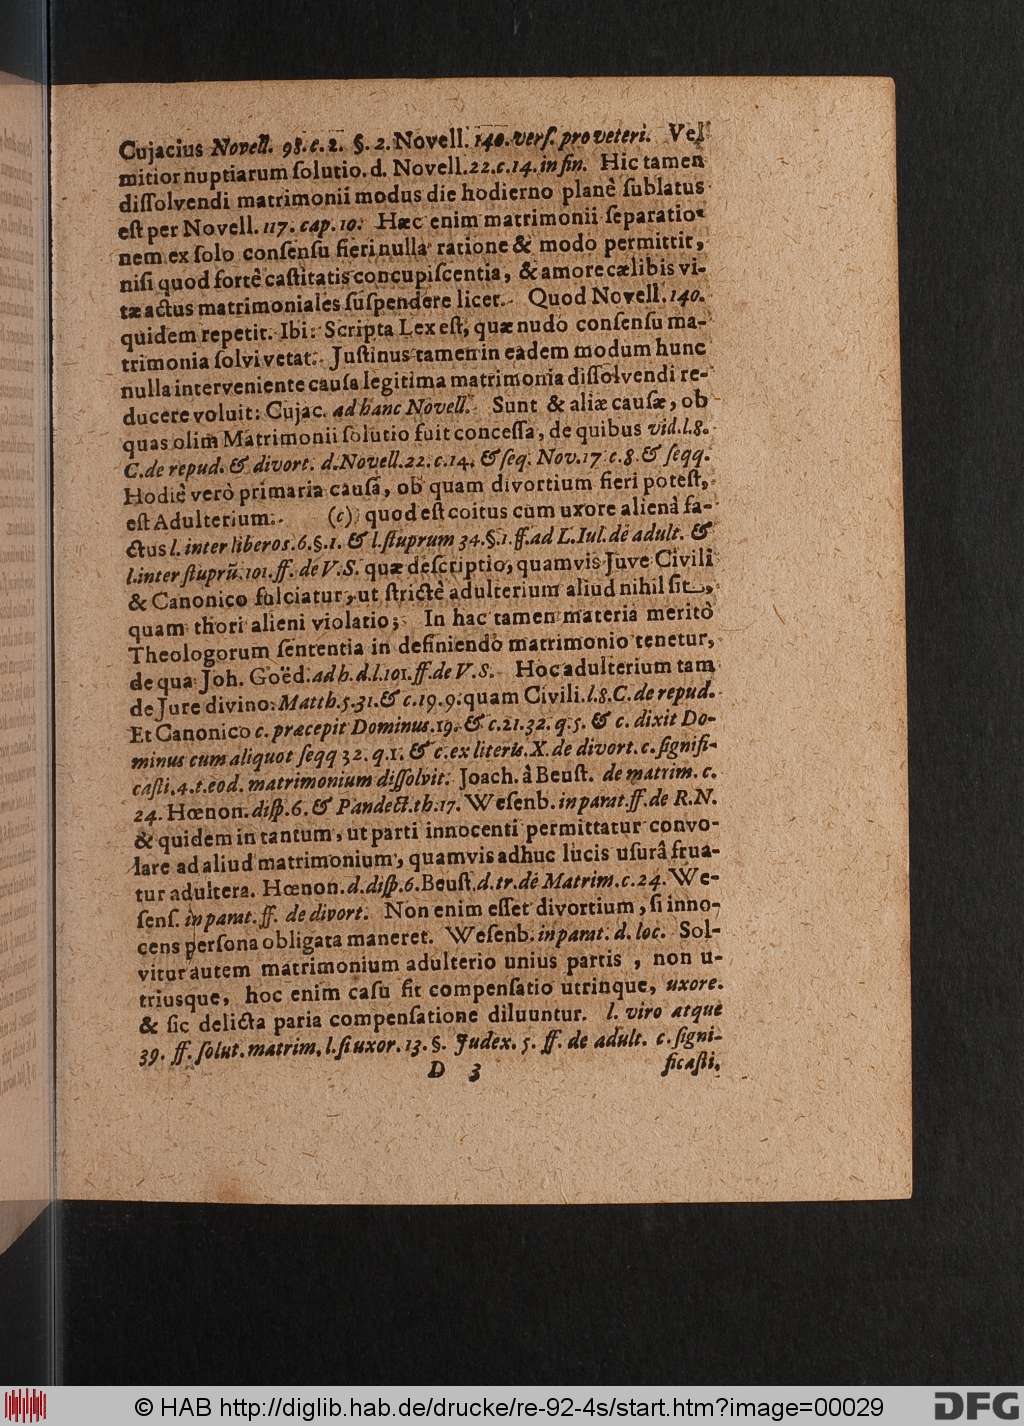 Cujacius Novell. 98. c. 2. §. 2. Novell. 140. verſ. pro veteri. Vel
mitior nuptiarum ſolutio. d. Novell. 22. c. 14. in fin. Hic tamen
diſſolvendi matrimonii modus die hodierno planè ſublatus
eſt per Novell. 117. cap. 10. Hæc enim matrimonii ſeparatio-
nem ex ſolo conſenſu fieri nulla ratione & modo permittit,
niſi quod fortè caſtitatis concupiſcentia, & amore cælibis vi-
tæ actus matrimoniales ſuſpendere licet. Quod Novell. 140.
quidem repetit. Ibi: Scripta Lex eſt, quæ nudo conſenſu ma-
trimonia ſolvi vetat. Juſtinus tamen in eadem modum hunc
nulla interveniente cauſa legitima matrimonia diſſolvendi re-
ducere voluit: Cujac. ad hanc Novell. Sunt & aliæ cauſæ, ob
quas olim Matrimonii ſolutio fuit conceſſa, de quibus vid. l. 8.
C. de repud. & divort. d. Novell. 22. c. 14. & ſeq. Nov. 17. c. 8. & ſeqq.
Hodiè verò primaria cauſa, ob quam divortium fieri poteſt,
eſt Adulterium. (c) quod eſt coitus cum uxore alienâ fa-
ctus l. inter liberos. 6. §. 1. & l. ſtuprum 34. §. 1. ff. ad L. Iul. de adult. &
l. inter ſtuprũ. 101. ff. de V. S. quæ deſcriptio, quamvis Jure Civili
& Canonico fulciatur, ut ſtrictè adulterium aliud nihil ſit,
quam thori alieni violatio; In hac tamen materia meritò
Theologorum ſententia in definiendo matrimonio tenetur,
de qua Joh. Goëd. ad h. d. l. 101. ff. de V. S. Hoc adulterium tam
de Jure divino: Matth. 5. 31. & c. 19. 9. quam Civili. l. 8. C. de repud.
Et Canonico c. præcepit Dominus. 19. & c. 21. 32. q. 5. & c. dixit Do-
minus cum aliquot ſeqq 32. q. 1. & c. ex literis. X. de divort. c. ſignifi-
caſti. 4. t. eod. matrimonium diſſolvit. Joach. â Beuſt. de matrim. c.
24. Hœnon. diſp. 6. & Pandect. th. 17. Weſenb. in parat. ff. de R. N.
& quidem in tantum, ut parti innocenti permittatur convo-
lare ad aliud matrimonium, quamvis adhuc lucis uſurâ frua-
tur adultera. Hœnon. d. diſp. 6. Beuſt. d. tr. de Matrim. c. 24. We-
ſenſ. in parat. ff. de divort. Non enim eſſet divortium, ſi inno-
cens perſona obligata maneret. Weſenb. in parat. d. loc. Sol-
vitur autem matrimonium adulterio unius partis, non u-
triusque, hoc enim caſu fit compenſatio utrinque, uxore.
& ſic delicta paria compenſatione diluuntur. l. viro atque
39. ff. ſolut. matrim. l. ſi uxor. 13. §. Judex. 5. ff. de adult. c. ſigni-
D 3 ficaſti.
© HAB http://diglib.hab.de/drucke/re-92-4s/start.htm?image=00029
DFG